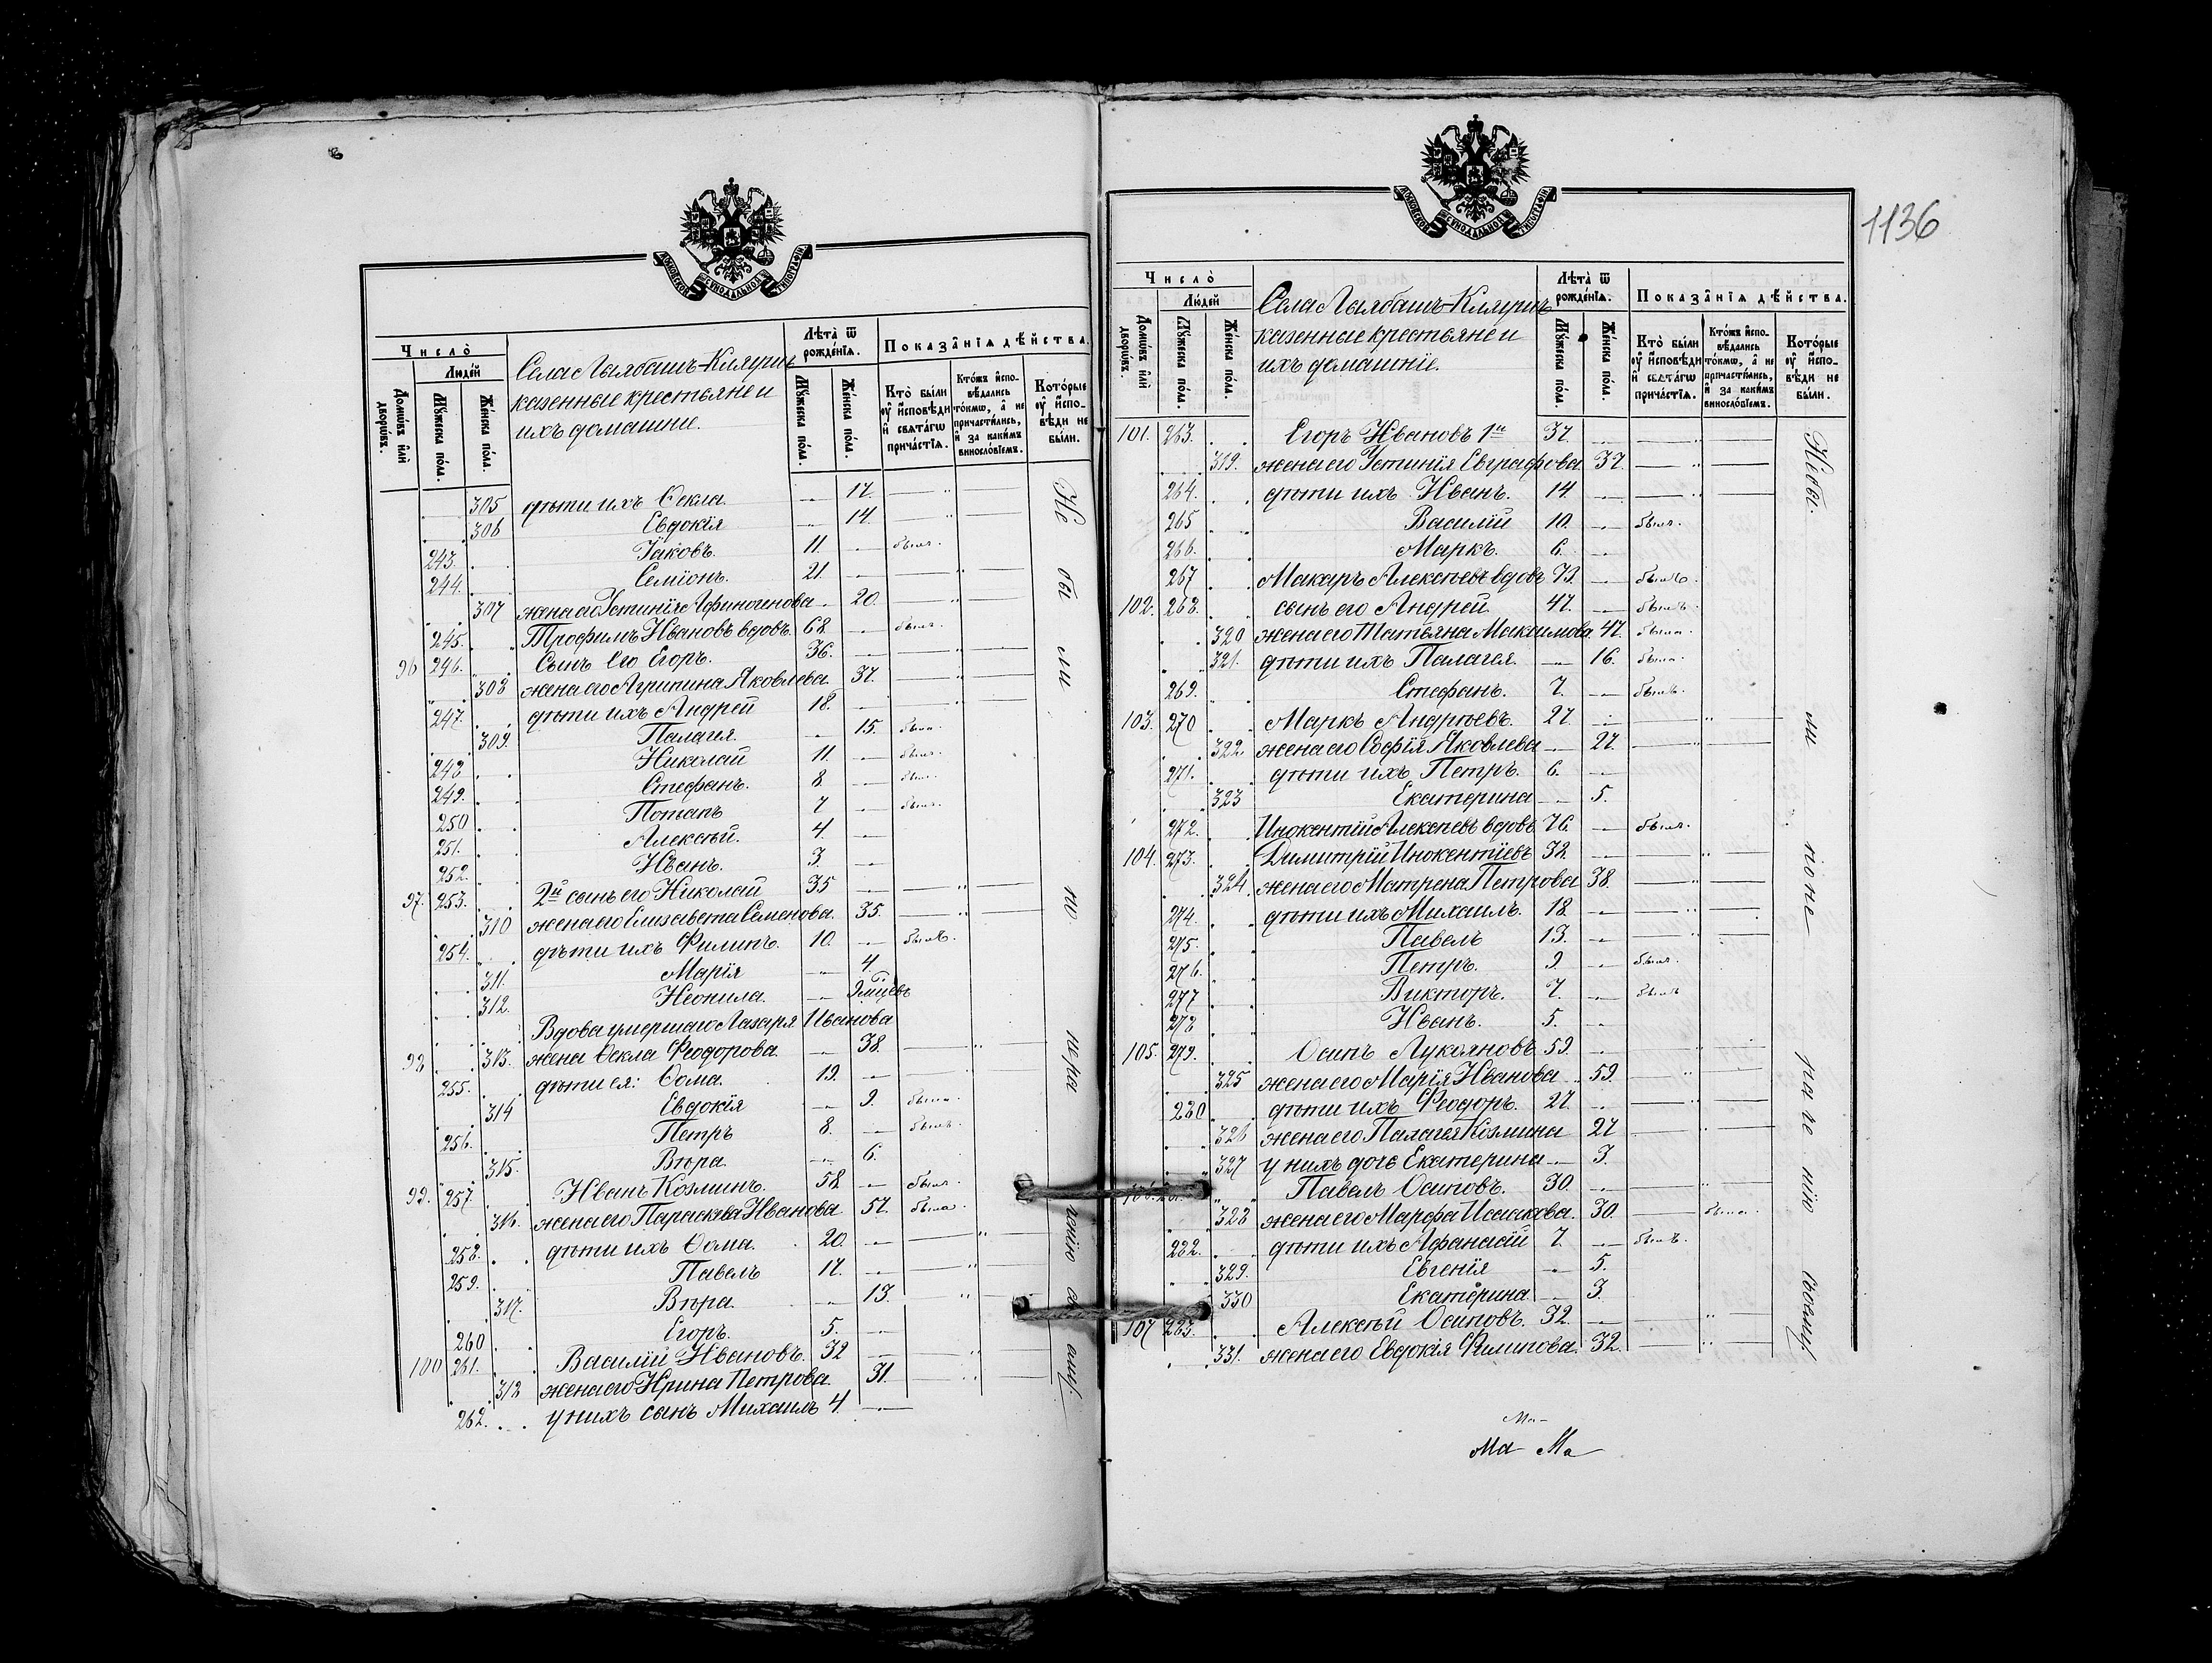 МОСКОВСКОЙ СѴНОДАЛЬНОЙ ТИПОГРАФІИ
Число̀
Люде́й
Домѡ́въ и҆лѝ дворѡ́въ.
Мꙋ́жеска по́ла.
Же́нска по́ла.
Села Лялбашъ-Клярин
казенные крестьяне и
ихъ домашніе.
Лѣ́та ѿ рожде́нїѧ.
Мꙋ́жеска по́ла.
Же́нска по́ла.
Показа́нїѧ дѣ́йства.
Кто̀ бы́ли оу҆ и҆сповѣ́ди и҆ свѧта́гѡ прича́стїѧ.
Кто́жъ и҆сповѣ́дались то́кмѡ, а҆ не причасти́лись, и҆ за каки́мъ винослові́емъ.
Кото́рые оу҆ и҆сповѣ́ди не бы́ли.
305 дѣти ихъ Ѳекла. 17.
306 Евдокія 14.
243. Іаковъ. 11. былъ.
244. Семіонъ. 21.
307 жена его Устинія Афиногенова 20.
245. Трофимъ Ивановъ вдовъ. 68. былъ.
96 246. Сынъ Его Егоръ. 36.
308 жена его Агрипина Яковлева 37.
247 дѣти ихъ Андрей 18.
309. Палагея. 15. была
248. Николай 11. былъ.
249. Стефанъ. 8. былъ.
250 Потапъ 7 былъ.
251. Алексѣй. 4.
252. Иванъ. 3.
97. 253. 2й сынъ его Николай 35
310 жена его Елисавета Семенова. 35.
254. дѣти ихъ Филипъ. 10. былъ.
311. Марія 4.
312. Неонила. 9 мцевъ
Вдова умершаго Лазаря Иванова
98 313. жена Ѳекла Феодорова. 38.
255. дѣти ея: Ѳома. 19.
314 Евдокія 9. была.
256. Петръ 8. былъ.
315. Вѣра. 6.
99. 257. Иванъ Козминъ. 58. былъ.
316. жена его Параскева Иванова 57. была.
258. дѣти ихъ Ѳома. 20.
259. Павелъ 17.
317. Вѣра. 13.
260 Егоръ. 5.
100 261. Василій Ивановъ. 32
318 жена его Ирина Петрова. 31.
262. у нихъ сынъ Михаилъ 4.
Не бы ли по
1136
МОСКОВСКОЙ СѴНОДАЛЬНОЙ ТИПОГРАФІИ
Число̀
Люде́й
Домѡ́въ и҆лѝ дворѡ́въ.
Мꙋ́жеска по́ла.
Же́нска по́ла.
Села Лялбашъ-Клярин
казенные крестьяне и
ихъ домашніе.
Лѣ́та ѿ рожде́нїѧ.
Мꙋ́жеска по́ла.
Же́нска по́ла.
Показа́нїѧ дѣ́йства.
Кто̀ бы́ли оу҆ и҆сповѣ́ди и҆ свѧта́гѡ прича́стїѧ.
Кто́жъ и҆сповѣ́дались то́кмѡ, а҆ не причасти́лись, и҆ за каки́мъ винослові́емъ.
Кото́рые оу҆ и҆сповѣ́ди не бы́ли.
101. 263. Егоръ Ивановъ 1й 37.
319. жена его Устинія Евграфова 37.
264. дѣти ихъ Иванъ. 14.
265 Василій 10. былъ.
266. Маркъ. 6.
267 Макаръ Алексѣевъ вдовъ 73. былъ.
102. 268. сынъ его Андрей 47. былъ.
320 жена его Татьяна Максимова 47. была.
321. дѣти ихъ Палагея. 16. была.
269. Стефанъ. 7. былъ.
103. 270 Маркъ Андрѣевъ. 27.
322. жена его Софія Яковлева 27.
271. дѣти ихъ Петръ. 6.
323 Екатерина 5.
272. Инокентій Алексѣевъ вдовъ 76. былъ.
104. 273. Димитрій Инокентіевъ 32
324. жена его Матрена Петрова 38.
274. дѣти ихъ Михаилъ. 18.
275. Павелъ 13.
276. Петръ. 9. былъ.
277 Викторъ. 7. былъ
278 Иванъ. 5.
105. 279. Осипъ Лукояновъ 59.
325 жена его Марія Иванова 59.
280 дѣти ихъ Феодоръ. 27.
326 жена его Палагея Козмина 27
327 у нихъ дочь Екатерина 3.
Павелъ Осиповъ. 30.
328 жена его Марфа Исаакова. 30. была.
282. дѣти ихъ Афанасій 7. былъ.
329. Евгенія 5.
330 Екатерина. 3.
107 283. Алексѣй Осиповъ. 32.
331. жена его Евдокія Филипова. 32.
Ма-
Ма- Ма